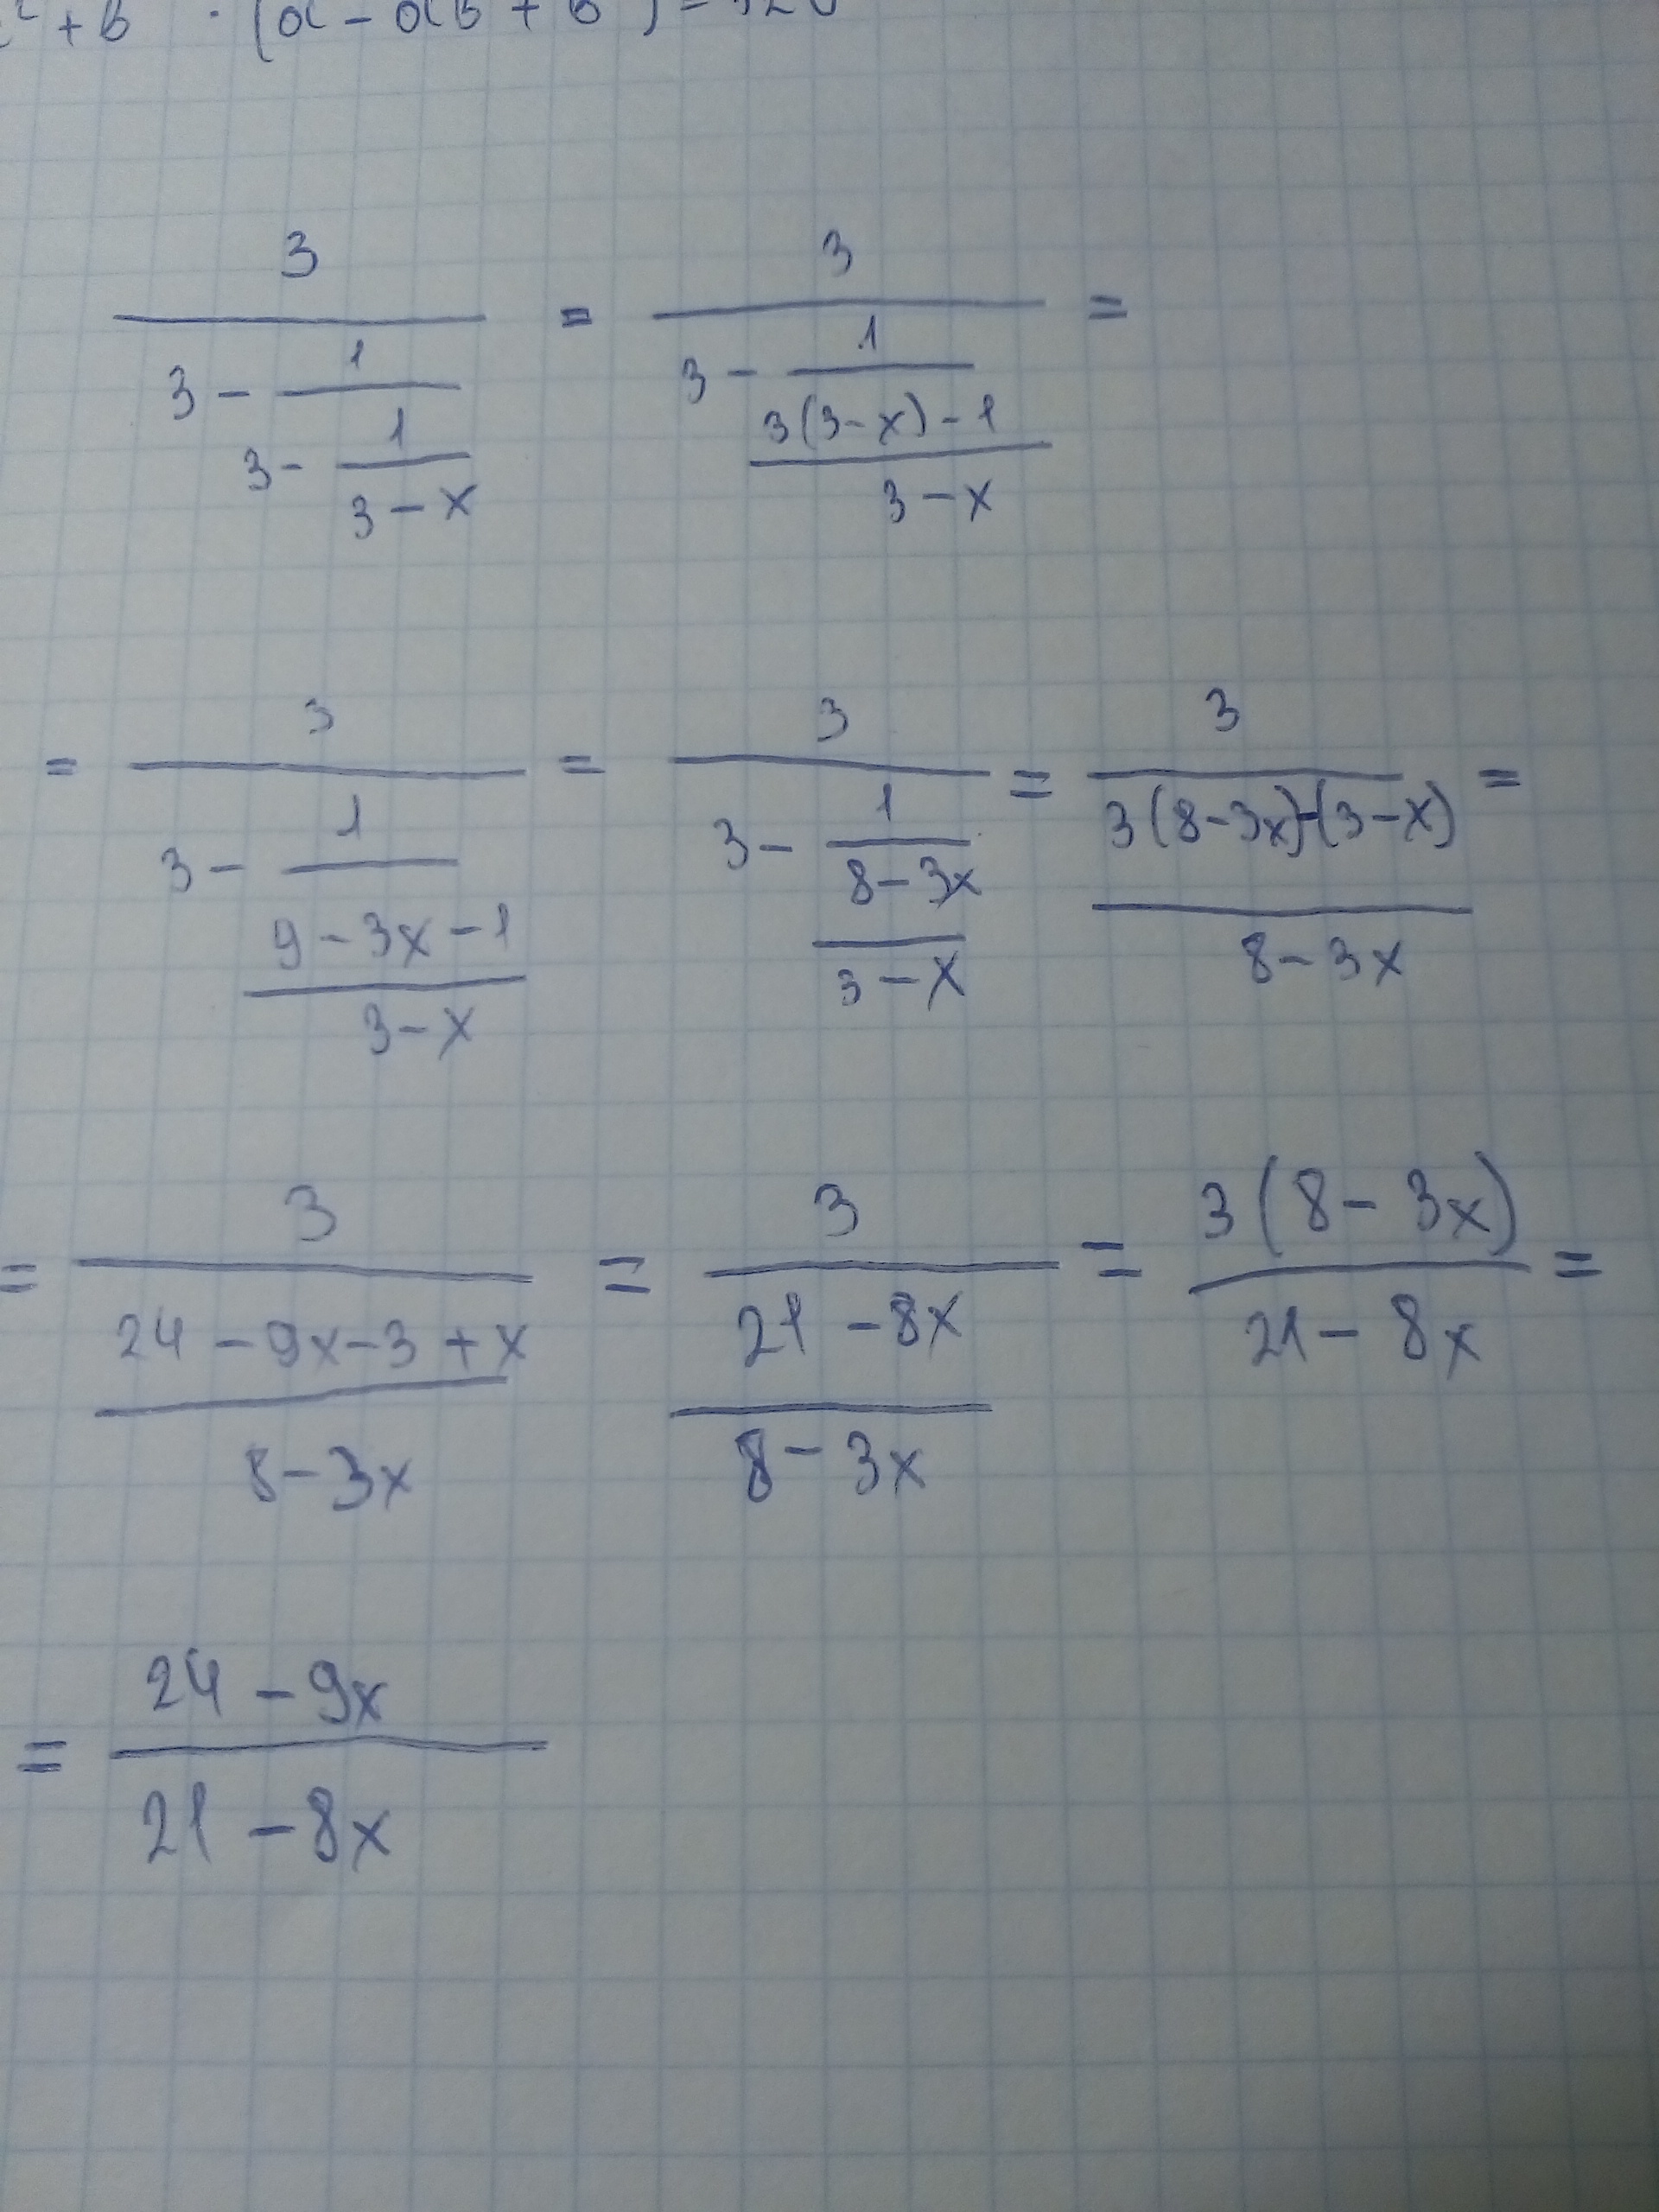 + b · (a - ab + b ) =
3 / (3 - 1 / (3 - 1 / (3 - x))) = 3 / (3 - 1 / ((3(3-x) - 1) / (3 - x))) =
= 3 / (3 - 1 / ((9 - 3x - 1) / (3 - x))) = 3 / (3 - 1 / ((8 - 3x) / (3 - x))) = 3 / ((3(8-3x)-(3-x)) / (8 - 3x)) =
= 3 / ((24 - 9x - 3 + x) / (8 - 3x)) = 3 / ((21 - 8x) / (8 - 3x)) = 3(8 - 3x) / (21 - 8x) =
= (24 - 9x) / (21 - 8x)